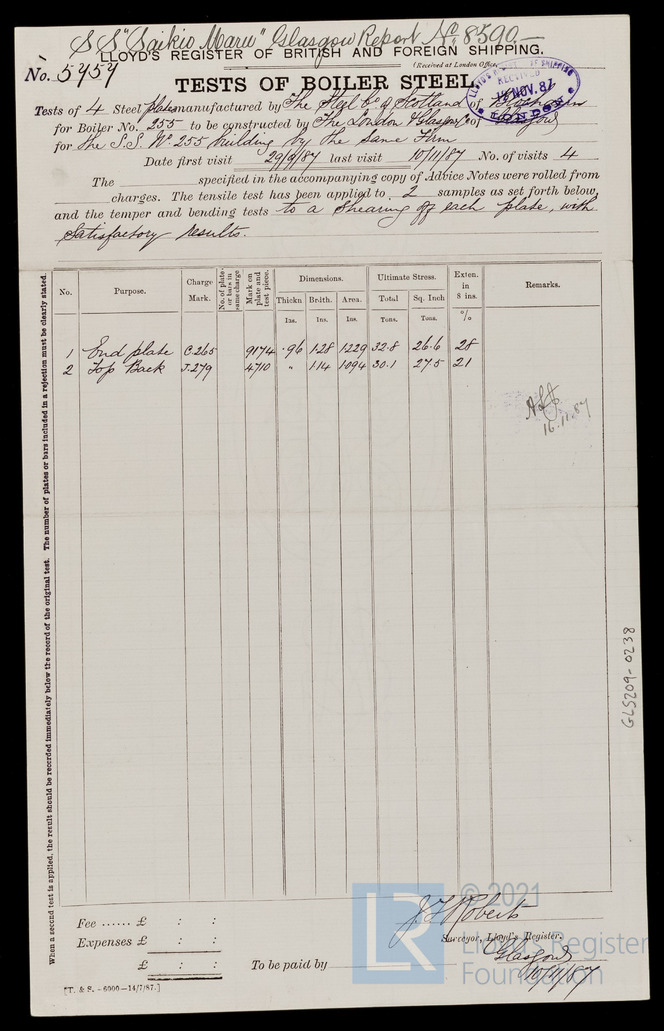 S S "Saikio Maru" Glasgow Report No. 8590
LLOYD'S REGISTER OF BRITISH AND FOREIGN SHIPPING.
(Received at London Office
No. 5959
LLOYD'S REGISTER OF SHIPPING
RECEIVED
NOV. 87
LONDON
TESTS OF BOILER STEEL
Tests of 4 Steel plates manufactured by The Steel Co. of Scotland of
for Boiler No. 255 to be constructed by The London & Glasgow Co of Glasgow
for the S.S. No 255 building by the same Firm
Date first visit 29/9/87 last visit 10/11/87 No. of visits 4
The specified in the accompanying copy of Advice Notes were rolled from
charges. The tensile test has been applied to 2 samples as set forth below,
and the temper and bending tests to a shearing off each plate, with
satisfactory results.
No. Purpose. Charge Mark. No. of plates or bars in same charge Mark on plate and test piece. Dimensions. Ultimate Stress. Exten. in 8 ins. Remarks.
Thickn Brdth. Area. Total Sq. Inch
Ins. Ins. Ins. Tons. Tons. %
1 End plate C.265 9174 .96 1.28 1.229 32.8 26.6 28
2 Top Back J.279 4710 " 1.14 1.094 30.1 27.5 21
16.11.87
When a second test is applied, the result should be recorded immediately below the record of the original test. The number of plates or bars included in a rejection must be clearly stated.
GLS209-0238
Fee ...... £ : :
Expenses £ : :
£ : :
J F Roberts
Surveyor, Lloyd's Register,
Glasgow
10/11/87
To be paid by
[T. & S. - 6000-14/7/87.]
LR
© 2021
Lloyd's Register
Foundation